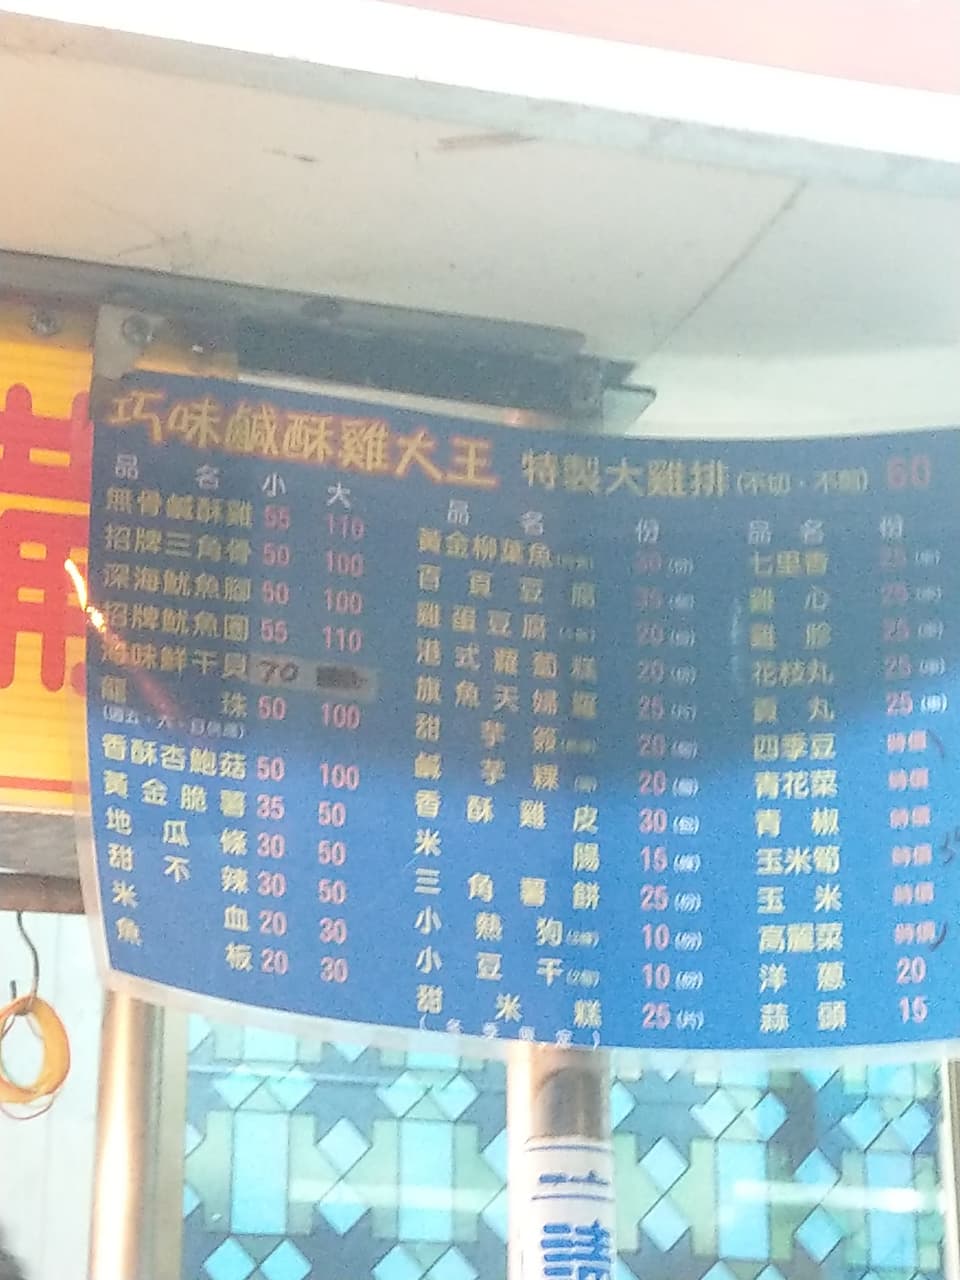 巧味鹹酥雞大王
特製大雞排 (不切·不剪) 60
品名 小 大
無骨鹹酥雞 55 110
招牌三角骨 50 100
深海魷魚腳 50 100
招牌魷魚圈 55 110
海味鮮干貝 70
龍珠 50 100
香酥杏鮑菇 50 100
黃金脆薯 35 50
地瓜條 30 50
甜不辣 30 50
米血 20 30
魚板 20 30
品名 份
黃金柳葉魚 (份)
百頁豆腐
雞蛋豆腐 20 (份)
港式蘿蔔糕 20 (份)
旗魚天婦羅 25 (片)
甜芋 20
鹹芋粿 20
香酥雞皮 30 (包)
米腸 15 (條)
三角薯餅 25 (份)
小熱狗 10 (份)
小豆干 10 (份)
甜米糕 25 (片)
(冬季限定)
品名 份
七里香 25 (串)
雞心 25 (串)
雞胗 25 (串)
花枝丸 25 (串)
貢丸 25 (串)
四季豆 時價
青花菜 時價
青椒 時價
玉米筍 時價
玉米 時價
高麗菜 時價
洋蔥 20
蒜頭 15